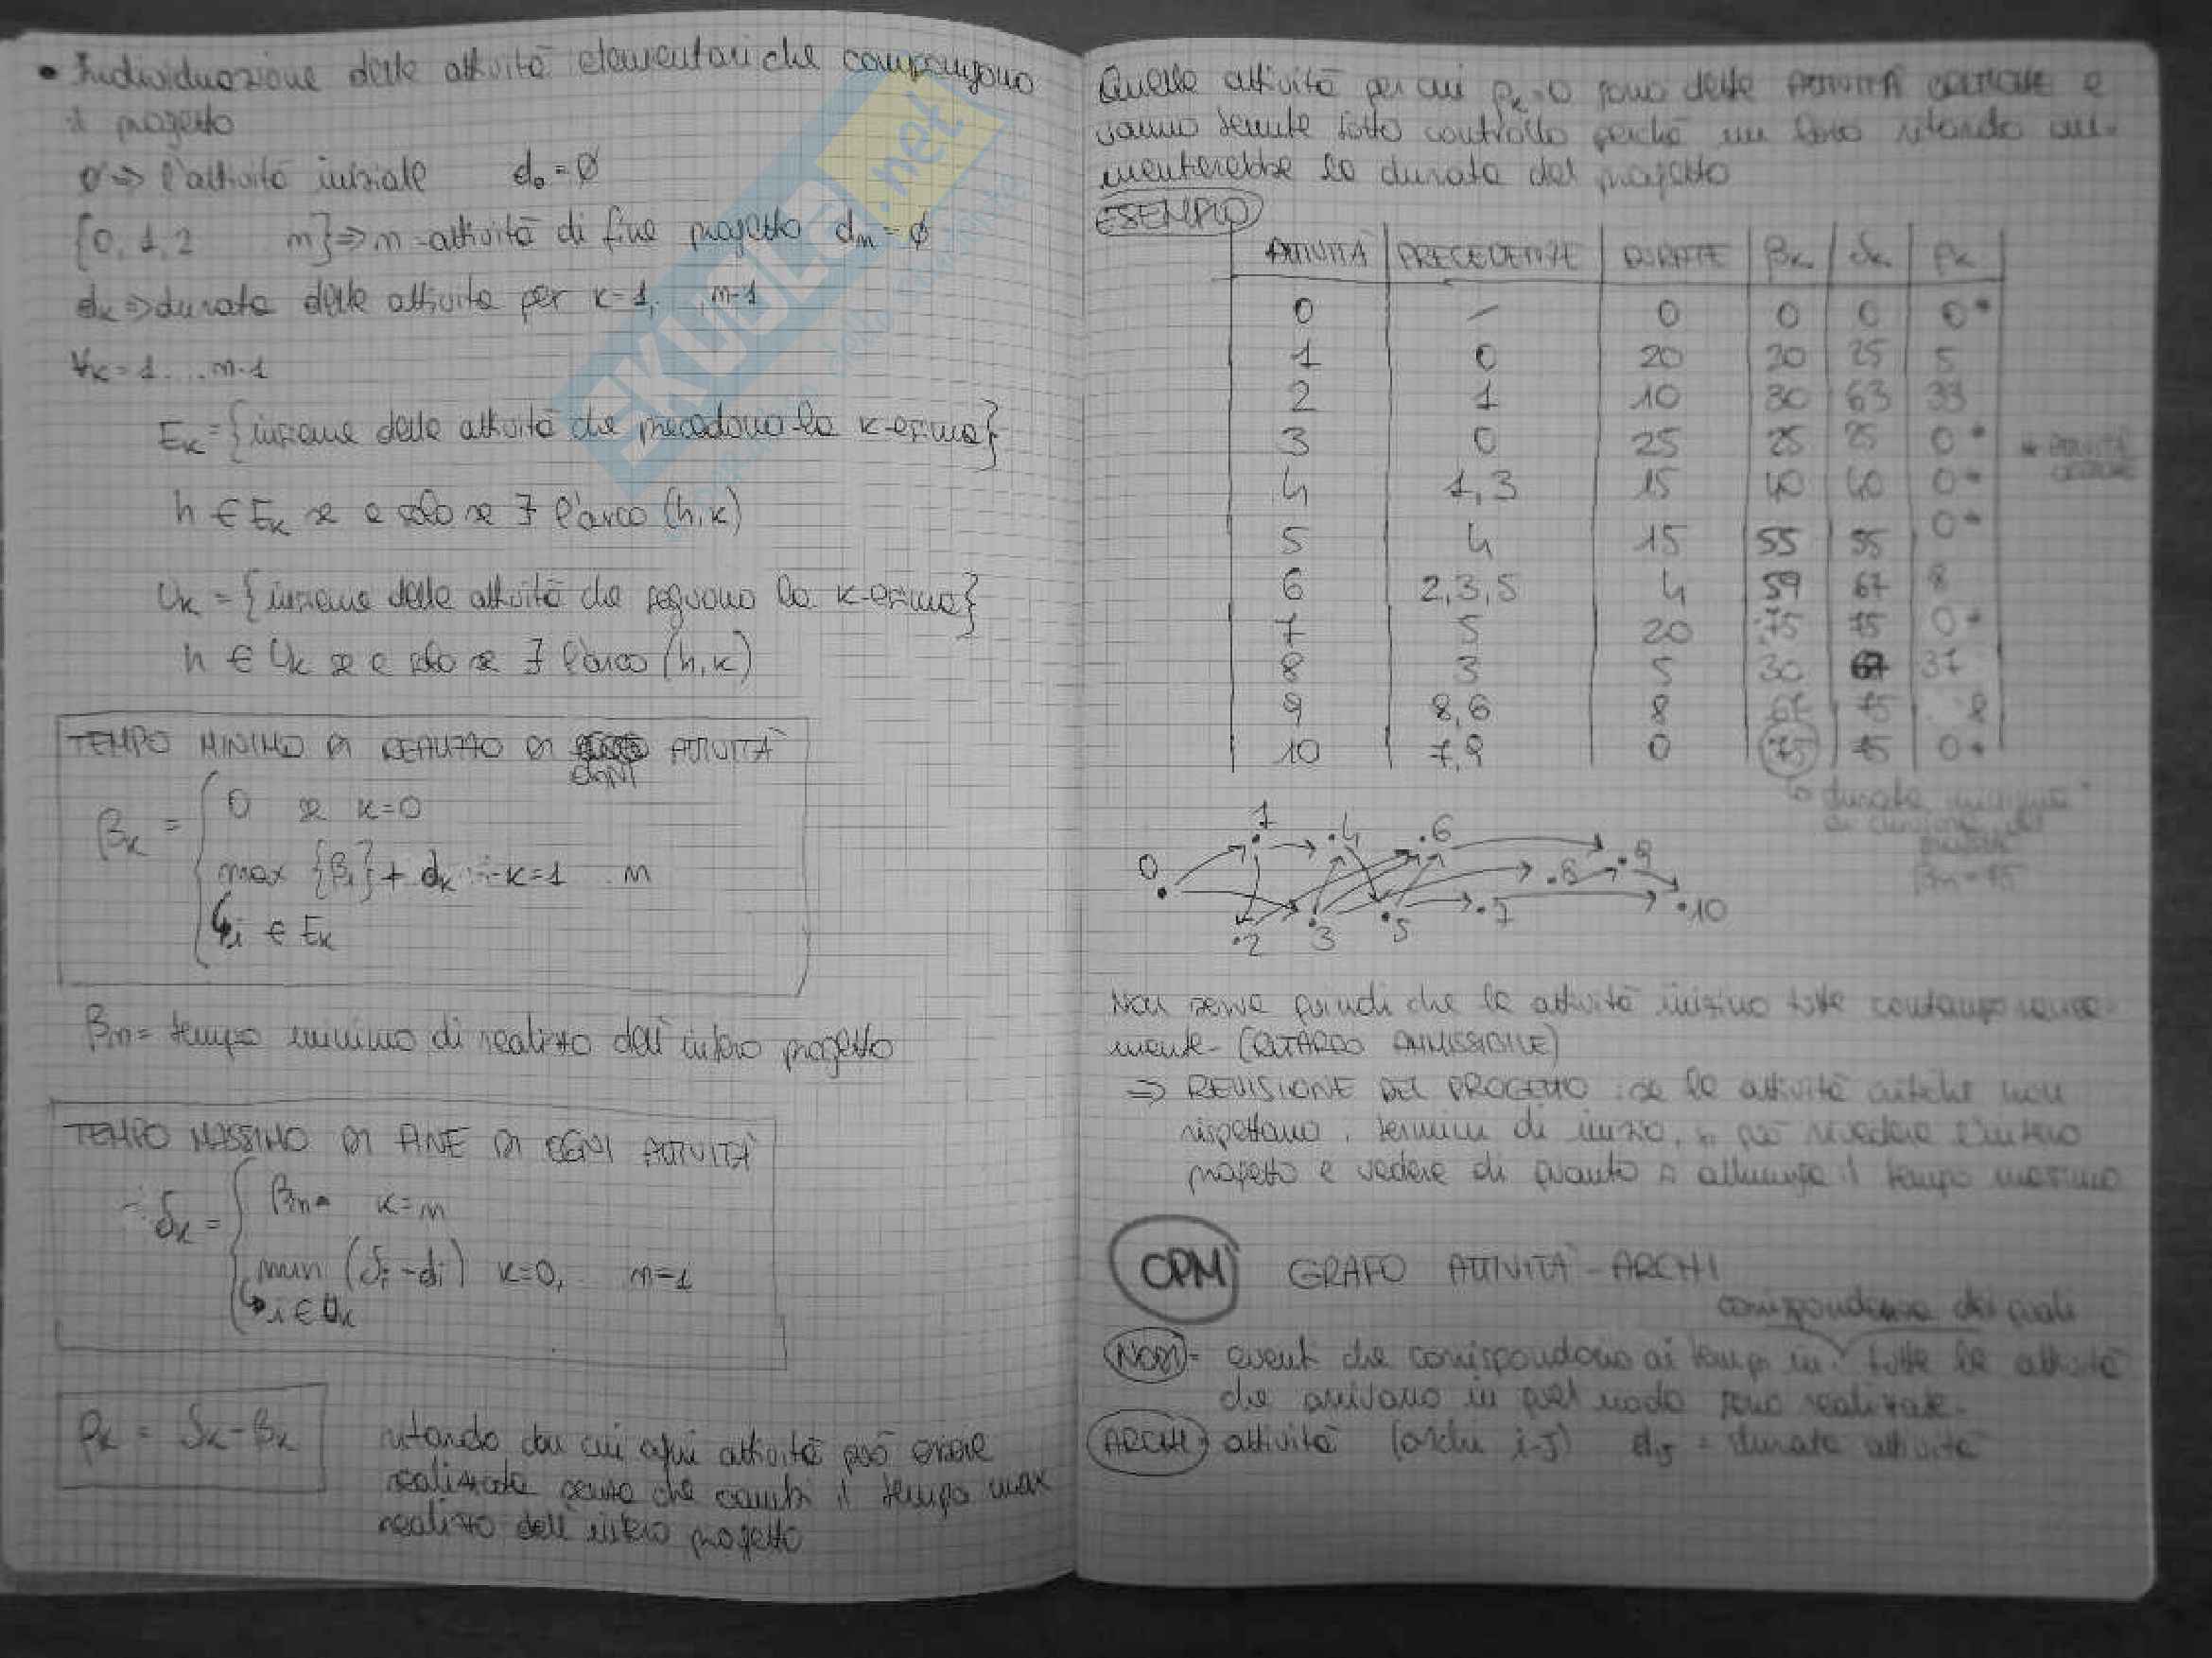 • Individuazione delle attività elementari che compongono
il progetto
0 => l'attività iniziale d₀ = ∅
{0, 1, 2 n} => n = attività di fine progetto dₙ = ∅
dₖ => durata delle attività per k=1, n-1
∀k = 1 ... n-1
Eₖ = {insieme delle attività che precedono la k-esima}
h ∈ Eₖ se e solo se ∃ l'arco (h,k)
Uₖ = {insieme delle attività che seguono la k-esima}
h ∈ Uₖ se e solo se ∃ l'arco (h,k)
TEMPO MINIMO DI REALIZZO DI ATTIVITÀ
OGNI
βₖ = 0 se k=0
max {βᵢ} + dₖ ÷ k=1 n
↳ i ∈ Eₖ
βₙ = tempo minimo di realizzo dell'intero progetto
TEMPO MASSIMO DI FINE DI OGNI ATTIVITÀ
δₖ = βₙ k=n
min (δᵢ - dᵢ) k=0, n=1
↳ i ∈ Uₖ
ρₖ = δₖ - βₖ
ritardo con cui ogni attività può essere
realizzata senza che cambi il tempo max
realizzo dell'intero progetto
Quelle attività per cui ρₖ=0 sono dette ATTIVITÀ CRITICHE e
vanno tenute sotto controllo perché un loro ritardo au-
menterebbe la durata del progetto
ESEMPIO
ATTIVITÀ PRECEDENZE DURATE βₖ δₖ ρₖ
0 – 0 0 0 0*
1 0 20 20 25 5
2 1 10 30 63 33
3 0 25 25 25 0*
4 1,3 15 40 40 0*
5 4 15 55 55 0*
6 2,3,5 4 59 67 8
7 5 20 75 75 0*
8 3 5 30 67 37
9 8,6 8 67 75 8
10 7,9 0 75 75 0*
* ATTIVITÀ
CRITICHE
↳ durata
βₙ = 75
0 1 4 6 9
8
2 3 5 7 10
Non serve quindi che le attività inizino tutte contemporanea-
mente - (RITARDO AMMISSIBILE)
=> REVISIONE DEL PROGETTO: se le attività critiche non
rispettano i termini di inizio, si può rivedere l'intero
progetto e vedere di quanto si allunga il tempo massimo
CPM GRAFO ATTIVITÀ - ARCHI
corrispondenza dei quali
NODI = eventi che corrispondono ai tempi in tutte le attività
che arrivano in quel nodo sono realizzate.
ARCHI = attività (archi i-j) dᵢⱼ = durata attività
SKUOLA.net